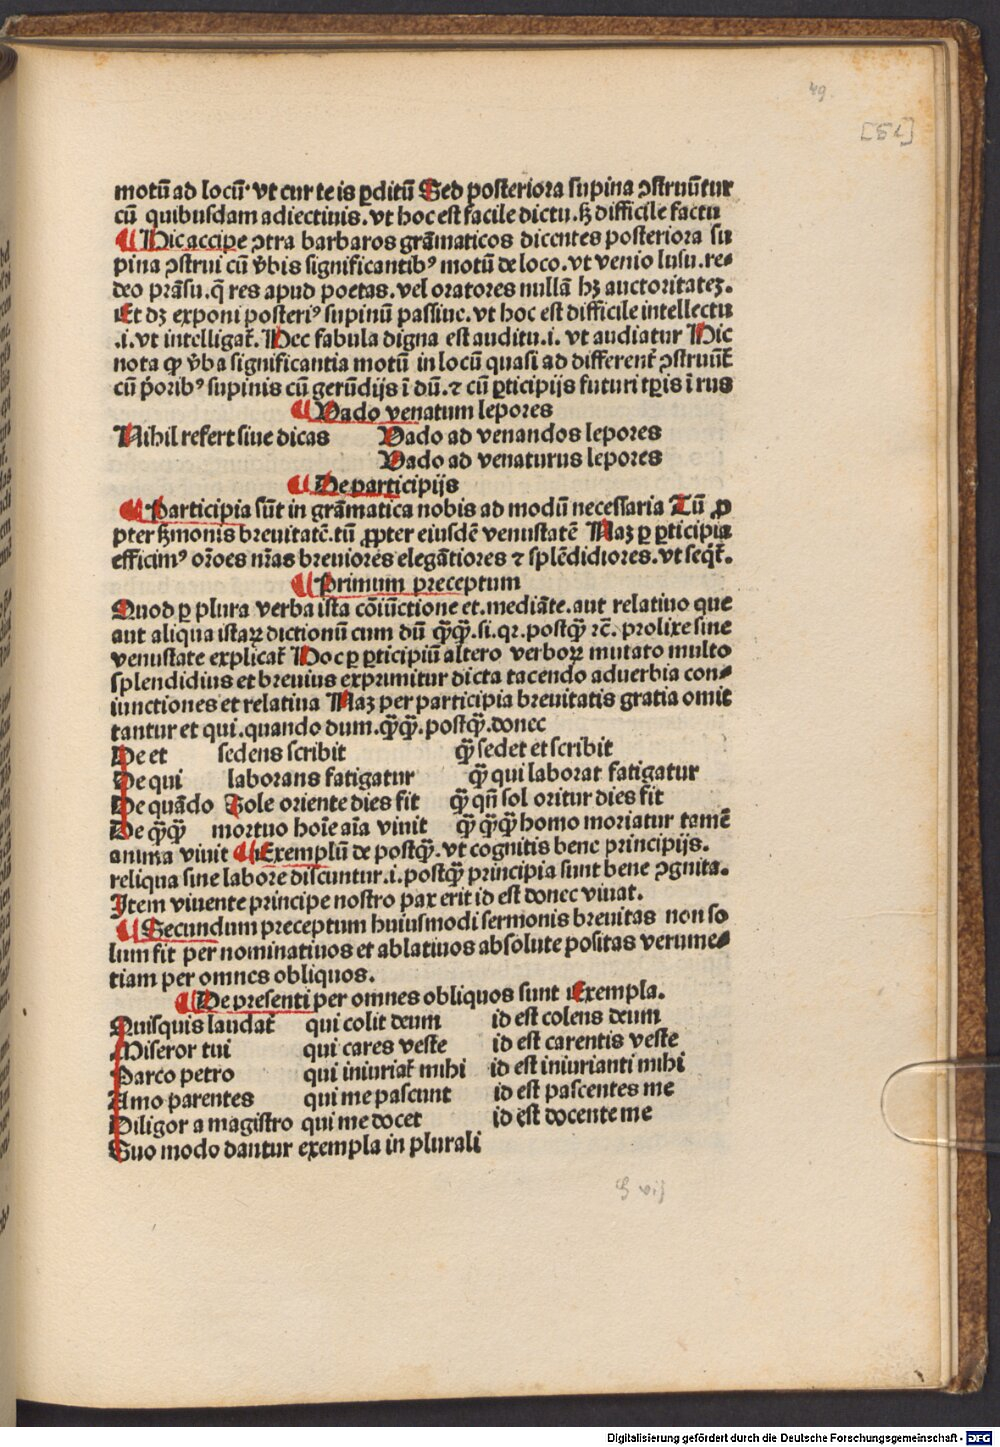 49.
[51]
motū ad locū· vt cur te is ꝑditū Sed posteriora supina ↄstruūtur
cū quibusdam adiectiuis. vt hoc est facile dictu. sꝫ difficile factu
¶ Hic accipe ↄtra barbaros grāmaticos dicentes posteriora su
pina ↄstrui cū v̄bis significantibꝰ motū de loco. vt venio lusu. re⸗
deo prāsu. q̄ res apud poetas. vel oratores nullā hꝫ auctoritateꝫ.
Et dꝫ exponi posteriꝰ supinū passiue. vt hoc est difficile intellectu
.i. vt intelligat᷑. Hec fabula digna est auditu. i. vt audiatur Hic
nota ꝙ v̄ba significantia motū in locū quasi ad different᷑ ↄstruūt᷑
cū p̄oribꝰ supinis cū gerūdijs ī dū. ⁊ cū ꝑticipijs futuri tꝑis ī rus
¶ Vado venatum lepores
Nihil refert siue dicas Vado ad venandos lepores
Vado ad venaturus lepores
¶ De participijs
¶ Participia sūt in grāmatica nobis ad modū necessaria Tū ꝓ
pter ẜmonis breuitatē. tū ꝓpter eiusdē venustatē Naꝫ ꝑ ꝑticipia
efficimꝰ orōes nr̄as breuiores elegātiores ⁊ splēdidiores. vt seqt᷑.
¶ Primum preceptum
Quod ꝑ plura verba ista cōiūctione et. mediāte. aut relatiuo que
aut aliqua istaꝝ dictionū cum dū q̄ꝙ̄. si. qꝛ. postꝙ̄ ⁊c̄. prolixe sine
venustate explicat᷑ Hoc ꝑ ꝑticipiū altero verboꝝ mutato multo
splendidius et breuius exprimitur dicta tacendo aduerbia con⸗
iunctiones et relatiua Naꝫ per participia breuitatis gratia omit
tantur et qui. quando dum. ꝙ̄ꝙ̄. postꝙ̄. donec
De et sedens scribit ꝙ̄ sedet et scribit
De qui laborans fatigatur ꝙ̄ qui laborat fatigatur
De quādo Sole oriente dies fit ꝙ̄ qn̄ sol oritur dies fit
De ꝙ̄ꝙ̄ mortuo hoīe aīa viuit ꝙ̄ ꝙ̄ꝙ̄ homo moriatur tamē
anima viuit ¶ Exemplū de postꝙ̄. vt cognitis bene principijs.
reliqua sine labore discuntur. i. postꝙ̄ principia sunt bene ↄgnita.
Item viuente principe nostro pax erit id est donec viuat.
¶ Secundum preceptum huiusmodi sermonis breuitas non so
lum fit per nominatiuos et ablatiuos absolute positas verume⸗
tiam per omnes obliquos.
¶ De presenti per omnes obliquos sunt Exempla.
Quisquis laudat᷑ qui colit deum id est colens deum
Miseror tui qui cares veste id est carentis veste
Parco petro qui iniuriat᷑ mihi id est iniurianti mihi
Amo parentes qui me pascunt id est pascentes me
Diligor a magistro qui me docet id est docente me
Suo modo dantur exempla in plurali
g vij
Digitalisierung gefördert durch die Deutsche Forschungsgemeinschaft - DFG